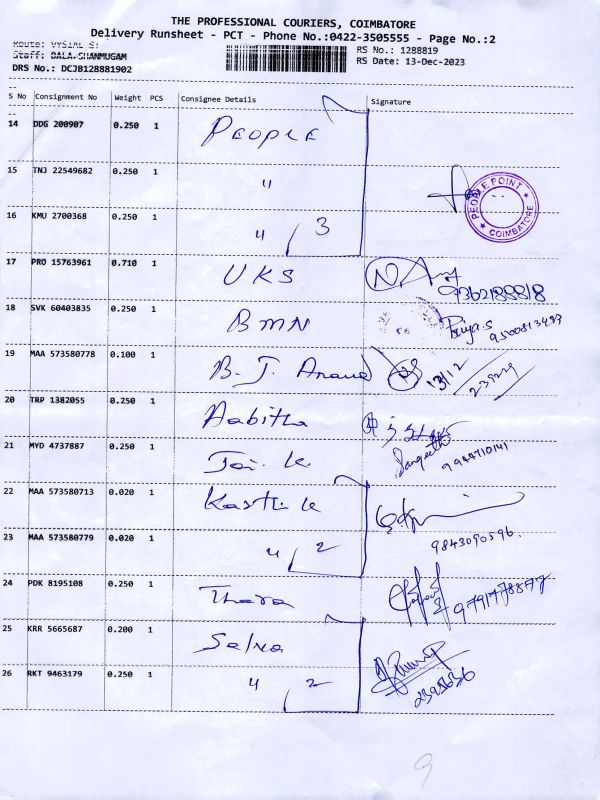 THE PROFESSIONAL COURIERS, COIMBATORE
Delivery Runsheet - PCT - Phone No.:0422-3505555 - Page No.:2
Route: VYSIAL ST
Staff: BALA.SHANMUGAM
DRS No.: DCJB128881902
RS No.: 1288819
RS Date: 13-Dec-2023
S No Consignment No Weight PCS Consignee Details Signature
14 DDG 200907 0.250 1 PEOPLE
15 TNJ 22549682 0.250 1 "
PEOPLE POINT
COIMBATORE
16 KMU 2700368 0.250 1 " 3
17 PRO 15763961 0.710 1 UKS 9362188818
18 SVK 60403835 0.250 1 BMN Priya.S
9500813493
19 MAA 573580778 0.100 1 B. J. Anand 13/12
20 TRP 1382055 0.250 1 Aabitha
21 MYD 4737887 0.250 1 Jai. k Sangeeth
9944710141
22 MAA 573580713 0.020 1 Karthik
23 MAA 573580779 0.020 1 " 2 9843090596.
24 PDK 8195108 0.250 1 Thara 9791778577
25 KRR 5665687 0.200 1 Selva
26 RKT 9463179 0.250 1 " 2 2395636
9